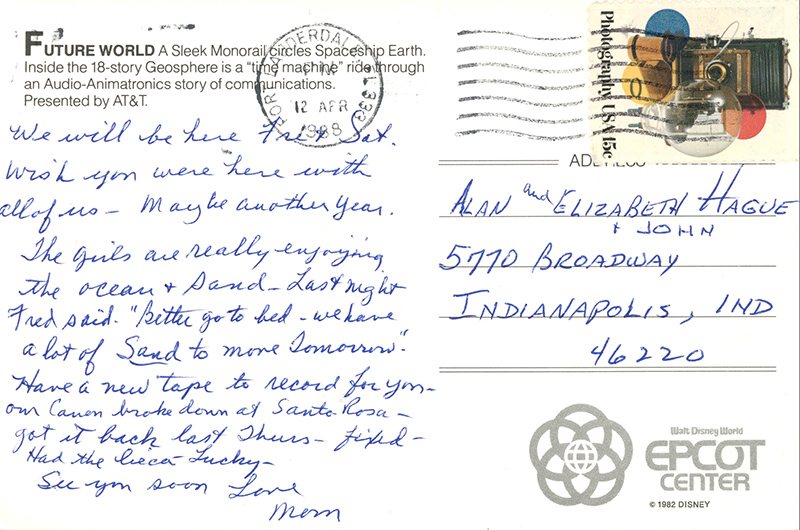 FUTURE WORLD A Sleek Monorail circles Spaceship Earth.
Inside the 18-story Geosphere is a "time machine" ride through
an Audio-Animatronics story of communications.
Presented by AT&T.
FORT LAUDERDALE, FL 333
PM
12 APR
1988
Photography USA 15c
We will be here Fri + Sat.
Wish you were here with
all of us - Maybe another year.
The girls are really enjoying
the ocean + sand - Last night
Fred said "Better go to bed - we have
a lot of Sand to move tomorrow".
Have a new tape to record for you -
our Canon broke down at Santa Rosa -
got it back last Thurs - fixed -
Had the Lucky -
See you soon Love
Mom
ADDRESS
ALAN and ELIZABETH HAGUE
+ JOHN
5770 BROADWAY
INDIANAPOLIS, IND
46220
Walt Disney World
EPCOT
CENTER
© 1982 DISNEY